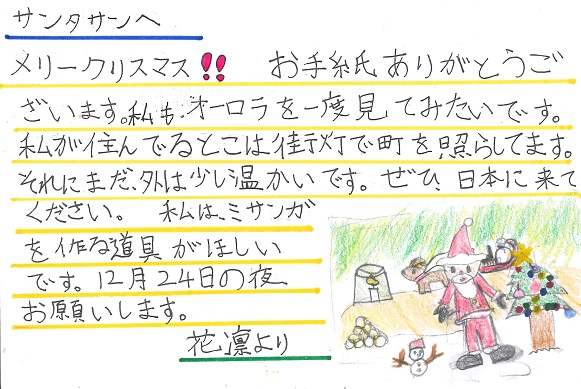 サンタサンへ
メリークリスマス!! お手紙ありがとうご
ざいます。私も、オーロラを一度見てみたいです。
私が住んでるとこは街灯で町を照らしてます。
それにまだ、外は少し温かいです。ぜひ、日本に来て
ください。 私は、ミサンガ
を作る道具がほしい
です。12月24日の夜、
お願いします。
花凛より